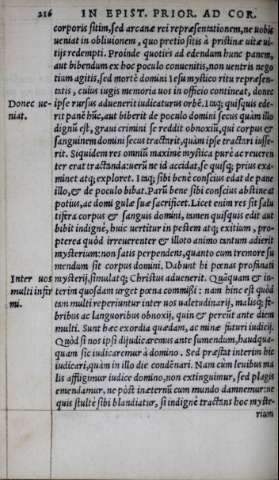 216 IN EPIST. PRIOR. AD COR.
corporis sitim, sed arcanæ rei repræsentationem, ne uobis
ueniat in obliuionem, quo pretio sitis à pristinæ uitæ ui-
tijs redempti. Proinde quoties ad edendum hunc panem,
aut bibendum ex hoc poculo conuenitis, non uentris nego
tium agitis, sed mortē domini Iesu mystico ritu repræsen-
tatis, cuius iugis memoria uos in officio contineat, donec
Donec ue-
niat.
ipse rursus aduenerit iudicaturus orbē. Itaq; quisquis ede-
rit panē hūc, aut biberit de poculo domini secus quàm illo
dignū est, graui crimini se reddit obnoxiū, qui corpus et
sanguinem domini secus tractarit, quàm ipse tractari iusse-
rit. Siquidem res omniū maxime mystica purè ac reueren
ter erat tractanda: uerū ne id accidat, se quisq; prius exa-
minet atq; exploret. Itaq; sibi benè conscius edat de pane
illo, & de poculo bibat. Parū bene sibi conscius abstineat
potius, ac domi gulæ suæ sacrificet. Licet enim res sit salu
tifera corpus & sanguis domini, tamen quisquis edit aut
bibit indignè, huic uertitur in pestem atq; exitium, pro-
pterea quòd irreuerenter & illoto animo tantum adierit
mysterium: non satis perpendens, quanto cum tremore su
mendum sit corpus domini. Dabunt hi pœnas profanati
mysterij, simulatq; Christus aduenerit. Quāquam & in-
Inter uos
multi infir
mi.
terim quosdam urget pœna commissi: nam hinc est quòd
tam multi reperiuntur inter uos ualetudinarij, malisq; fe-
bribus ac languoribus obnoxij, quin & pereūt ante diem
multi. Sunt hæc exordia quædam, ac minæ futuri iudicij.
Quòd si nos ipsi dijudicaremus ante sumendum, haudqua-
quam sic iudicaremur à domino. Sed præstat interim hic
iudicari, quàm in illo die condēnari. Nam cùm leuibus ma
lis affligimur iudice domino, non extinguimur, sed plagis
emendamur, ne pòst in æternū cum mundo damnemur: ne
quis stultè sibi blandiatur, si indignè tractans hoc myste-
rium